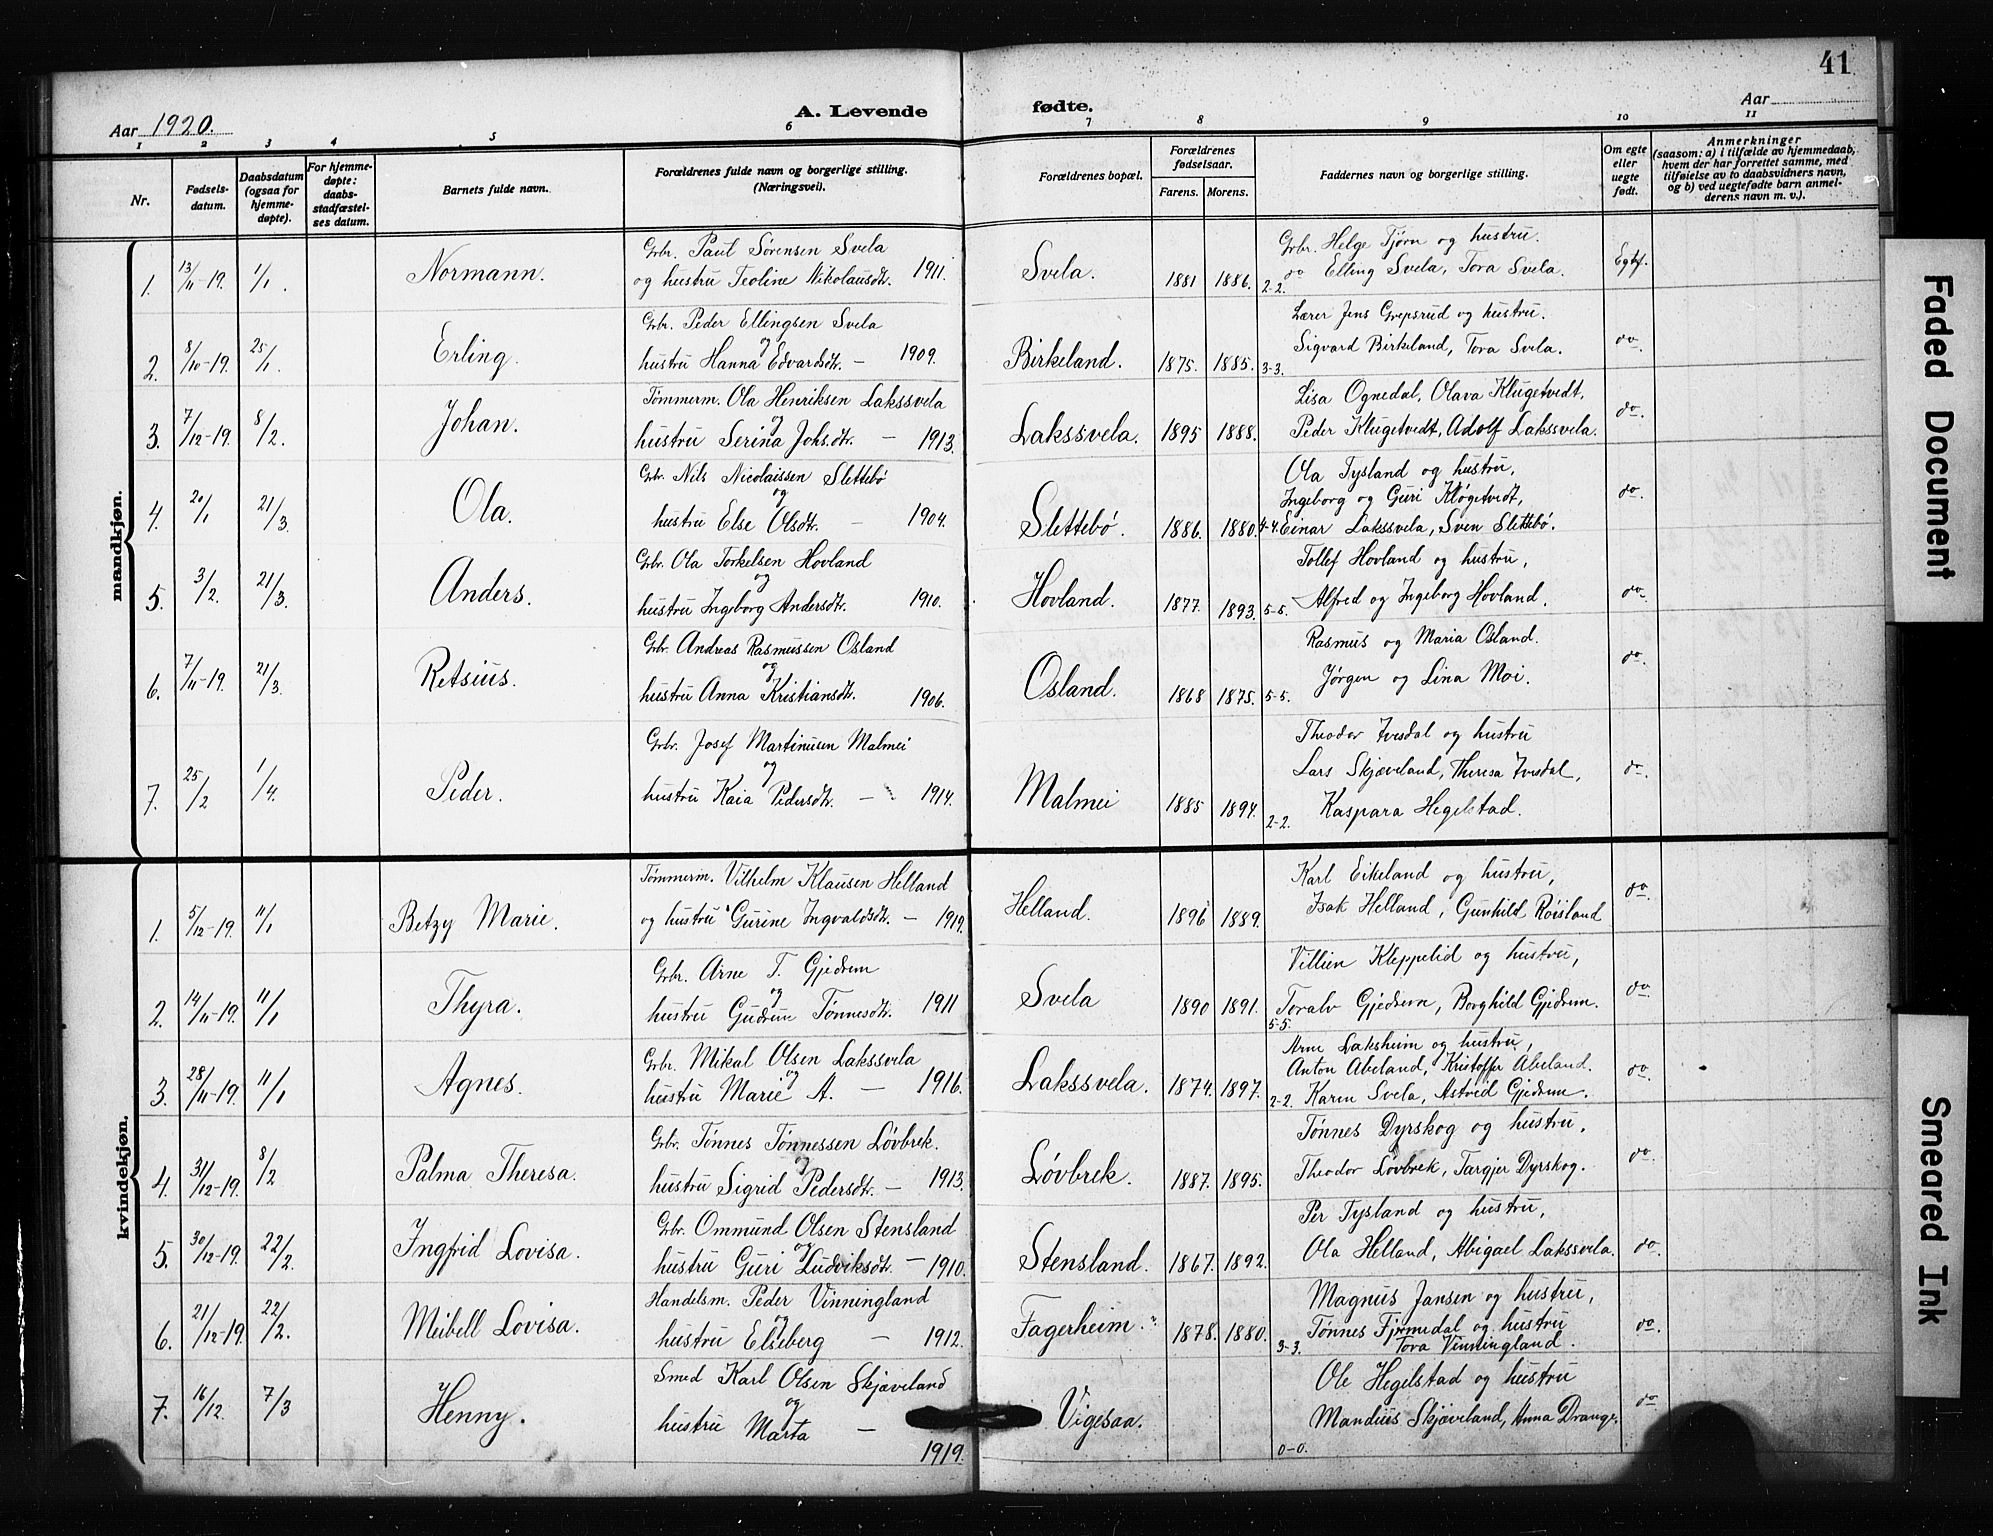 41
Aar 1920.
A. Levende fødte.
Aar
1 2 3 4 5 6 7 8 9 10 11
Nr.
Fødselsdatum.
Daabsdatum (ogsaa for hjemmedøpte).
For hjemmedøpte: daabs stadfæstelses datum.
Barnets fulde navn.
Forældrenes fulde navn og borgerlige stilling. (Næringsvei).
Forældrenes bopæl.
Forældrenes fødselsaar.
Farens. Morens.
Faddernes navn og borgerlige stilling.
Om egte eller uegte født.
Anmerkninger (saasom: a) i tilfælde av hjemmedaab, hvem der har forrettet samme, med tilføielse av to daabsvidners navn, og b) ved uegtefødte barn anmelderens navn m. v.).
mandkjøn.
Grbr. Paul Sørensen Svela Grbr. Helge Tjørn og hustru.
1. 13/11-19. 1/1. Normann. og hustru Teoline Nikolausdtr. 1911. Svela. 1881 1886. 2-2. do Elling Svela, Tora Svela. Egtef.
Grbr. Peder Ellingsen Svela Lærer Jens Grepsrud og hustru.
og
2. 8/10-19. 25/1. Erling. hustru Hanna Edvardsdtr. – 1909. Birkeland. 1875. 1885. 3-3. Sigvard Birkeland, Tora Svela. do.
Tømmerm. Ola Henriksen Lakssvela Lisa Ognedal, Olava Klugetvedt,
og
3. 7/12-19. 8/2. Johan. hustru Serina Johs.dtr. – 1913. Lakssvela. 1895 1888. Peder Klugetvedt, Adolf Lakssvela. do.
Grbr. Nils Nicolaissen Slettebø Ola Tysland og hustru,
og Ingeborg og Guri Kløgetvedt,
4. 20/1 21/3. Ola. hustru Else Olsdtr. – 1904. Slettebø 1886. 1880. 4-4. Einar Lakssvela, Sven Slettebø. do.
Grbr. Ola Torkelsen Hovland Tollef Hovland og hustru,
og
5. 3/2. 21/3. Anders. hustru Ingeborg Andersdtr. 1910. Hovland. 1877. 1893. 5-5. Alfred og Ingeborg Hovland. do.
Grbr. Andreas Rasmussen Osland Rasmus og Maria Osland.
og
6. 7/11-19. 21/3. Retsius. hustru Anna Kristiansdtr. 1906. Osland. 1868 1875. 5-5. Jørgen og Lina Moi. do.
Grbr. Josef Martinusen Malmei Theodor Ivesdal og hustru
og Lars Skjæveland, Theresa Ivesdal,
7. 25/2 1/4. Peder. hustru Kaia Pedersdtr. – 1914. Malmei 1885 1894. 2-2. Kaspara Hegelstad. do.
kvindekjøn.
Tømmerm. Vilhelm Klausen Helland Karl Eikeland og hustru,
1. 5/12-19. 11/1 Betzy Marie. og hustru Gurine Ingvaldsdtr. – 1919. Helland. 1896 1889. Isak Helland, Gunhild Røisland do
Grbr. Arne T. Gjedrem Villien Kleppelid og hustru,
og
2. 14/11-19. 11/1 Thyra. hustru Gudrun Tønnesdtr. 1911 Svela 1890 1891. 5-5. Toralv Gjedrem, Borghild Gjedrem. do
Grbr. Mikal Olsen Lakssvela Arne Laksheim og hustru,
og Anton Abeland, Kristoffer Abeland.
3. 28/11-19. 11/1 Agnes. hustru Marie A. – 1916. Lakssvela. 1874. 1897. 2-2. Karen Svela, Astrid Gjedrem. do.
Grbr. Tønnes Tønnessen Løvbrek. Tønnes Dyrskog og hustru,
og
4. 31/12-19. 8/2 Palma Theresa. hustru Sigrid Pedersdtr. – 1913. Løvbrek. 1887. 1895. Theodor Løvbrek, Targjer Dyrskog. do.
Grbr. Ommund Olsen Stensland Per Tysland og hustru,
og
5. 30/12-19. 22/2. Ingfrid Lovisa. hustru Guri Ludviksdtr. – 1910. Stensland. 1867. 1892. Ola Helland, Abigael Lakssvela. do.
Handelsm. Peder Vinningland Magnus Jansen og hustru,
og
6. 21/12-19. 22/2. Meibell Lovisa. hustru Elseberg – 1912. Fagerheim. 1878. 1880. 3-3. Tønnes Fjermedal og hustru do.
Tora Vinningland.
Smed Karl Olsen Skjæveland Ole Hegelstad og hustru
og
7. 16/12. 7/3 Henny. hustru Marta – 1919. Vigesaa. 0-0. Mandius Skjæveland, Anna Drange. do
Faded Document
Smeared Ink